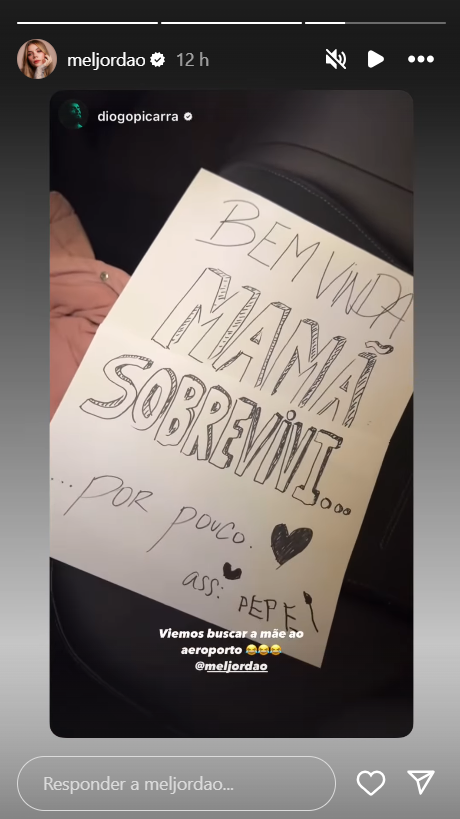 meljordao 12 h
diogopicarra
BEM VINDA
MAMÃ
SOBREVIVI...
...POR POUCO.
ass: PEPE
Viemos buscar a mãe ao
aeroporto 😂😂😂
@meljordao
Responder a meljordao...